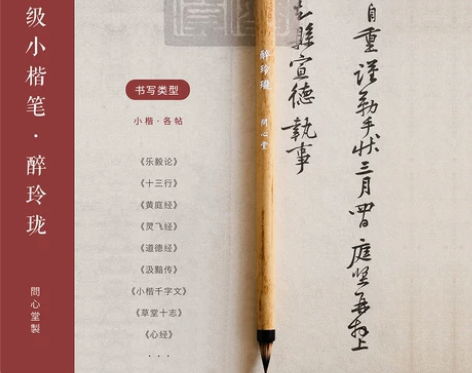 级小楷笔·醉玲珑
問心堂製
书写类型
小楷·各帖
《乐毅论》
《十三行》
《黄庭经》
《灵飞经》
《道德经》
《汲黯传》
《小楷千字文》
《草堂十志》
《心经》
···
醉玲瓏
問心堂
自重 谨勒手状三月四日 庭坚再拜上
县宣德 執事